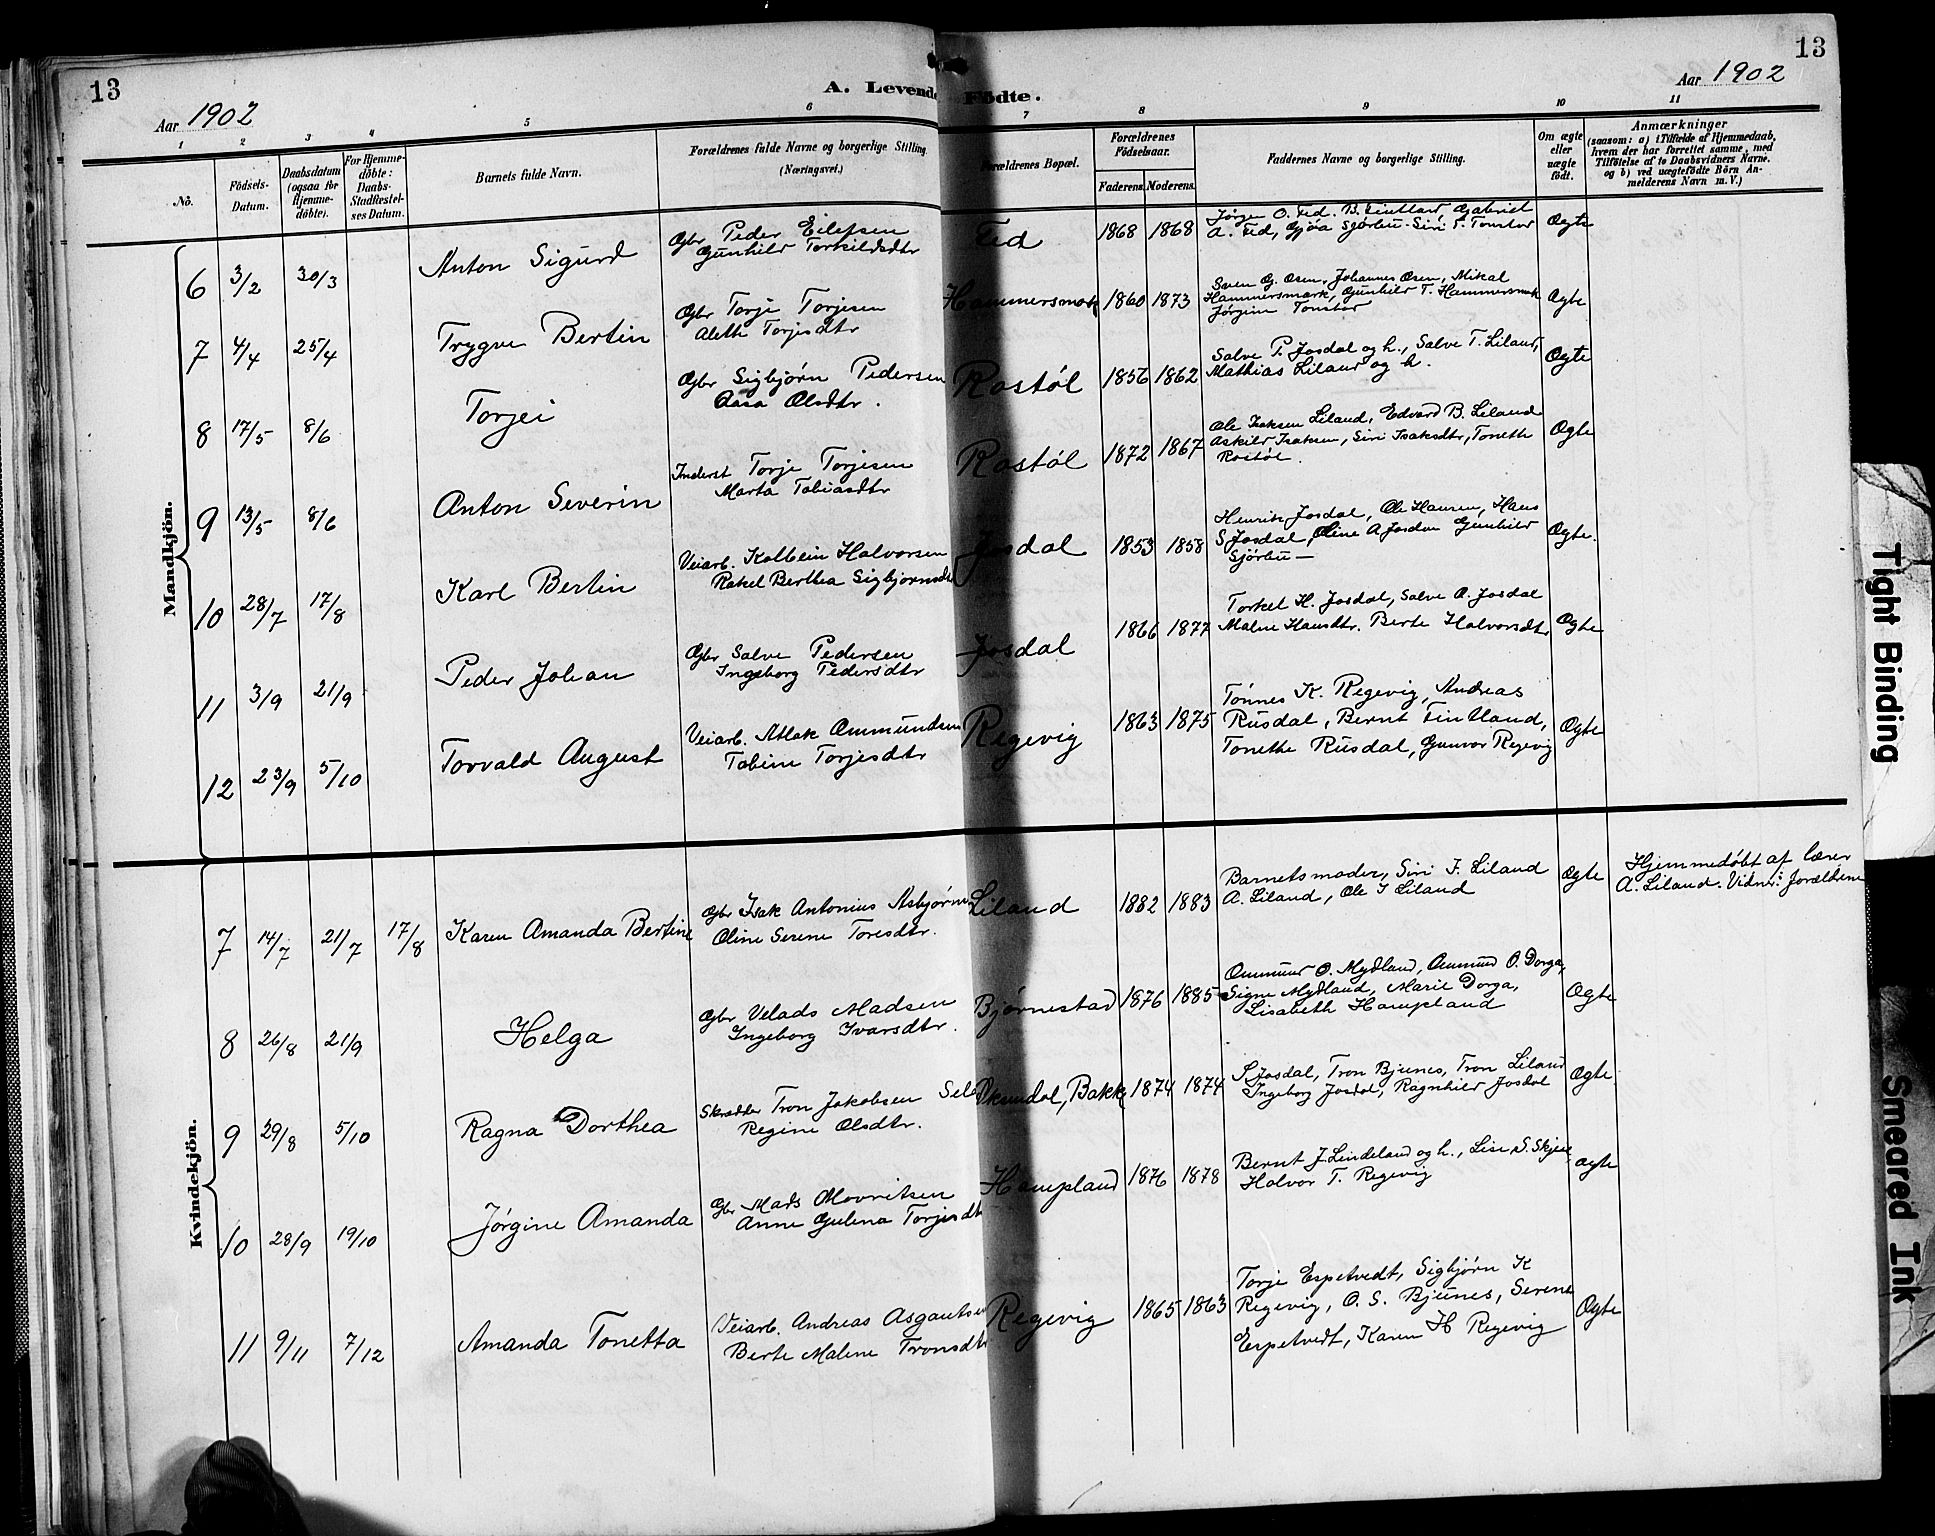 13
13
Aar 1902
A. Levende Födte.
Aar 1902
1 2 3 4 5 6 7 8 9 10 11
No.
Födsels-Datum.
Daabsdatum (ogsaa for Hjemmedöbte).
For Hjemmedöbte: Daabs-Stadfæstelses Datum.
Barnets fulde Navn.
Forældrenes fulde Navne og borgerlige Stilling. (Næringsvei.)
Forældrenes Bopæl.
Forældrenes Födselsaar.
Faderens. Moderens.
Faddernes Navne og borgerlige Stilling.
Om ægte eller uægte födt.
Anmærkninger
(saasom: a) i Tilfælde af Hjemmedaab, hvem der har forrettet samme, med Tilföielse af to Daabsvidners Navne. og b) ved uægtefödte Börn Anmelderens Navn m. V.)
Mandkjön.
6 3/2 30/3 Anton Sigurd Gbr Peder Eilefsen Fed 1868 1868 Jørgen O. Fed. B. Fintland, Gabriel Ægte
Gunhild Torkildsdtr A. Fed, Gjøa Sjørbu. Siri T. Tonstad
7 4/4 25/4 Trygve Bertin Gbr Torje Torjesen Hammersmark 1860 1873 Sven G. Osen, Johannes Osen, Mikal Ægte
Alette Torjesdtr Hammersmark, Gunhild T. Hammersmark
Jørgine Tonstad
8 17/5 8/6 Torjei Gbr Sigbjørn Pedersen Rostøl 1856 1862 Salve P. Josdal og h., Salve T. Liland, Ægte
Aasa Olsdtr. Mathias Liland og h.
9 13/5 8/6 Anton Severin Inderst Torje Torjesen Rostøl 1872 1867 Ole Isaksen Liland, Edvard B. Liland Ægte
Marta Tobiasdtr Askild Isaksen, Siri Isaksdtr, Tonette
Rostøl.
10 28/7 17/8 Karl Bertin Veiarb. Kolbein Halvorsen Josdal 1853 1858 Henrik Josdal, Ole Hansen, Hans Ægte.
Rakel Berthea Sigbjørnsdtr S Josdal, Oline A Josdal Gunhild
Sjørbu —
11 3/9 21/9 Peder Johan Gbr Salve Pedersen Josdal 1866 1877 Torkel H. Josdal, Salve A. Josdal Ægte
Ingeborg Pedersdtr Malne Hansdtr. Berte Halvorsdtr
12 23/9 5/10 Torvald August Veiarb. Atlak Ommundsen Regevig 1863 1875 Tønnes K. Regevig, Andreas Ægte
Tobine Torjesdtr Rusdal, Bernt Fintland,
Tonethe Rusdal, Gunvor Regevig
Kvindekjön.
7 14/7 21/7 17/8 Karen Amanda Bertine Gbr Isak Antonius Asbjørns Liland 1882 1883 Barnets moder, Siri I. Liland Ægte Hjemmedøbt af lærer
Oline Serene Toresdtr. A. Liland, Ole I Liland A. Liland. Vidner: Forældrene
8 26/8 21/9 Helga Gbr Velads Madsen Bjørnestad 1876 1885 Ommund O. Mydland, Ommund O. Dorga, Ægte
Ingeborg Ivarsdtr. Signe Mydland, Marie Dorga,
Lisabeth Hampland
9 29/8 5/10 Ragna Dorthea Skrædder Tron Jakobsen Øksendal, Bakke 1874 1874 S Josdal, Tron Bjunes, Tron Liland Ægte
Regine Olsdtr. Ingeborg Josdal, Ragnhild Josdal
10 28/9 19/10 Jørgine Amanda Gbr Mads Mouritsen Hampland 1876 1878 Bernt J Lindeland og h., Lise S. Skjeie, ægte
Anne Gulena Torjesdtr Halvor T. Regevig
11 9/11 7/12 Amanda Tonetta Veiarb. Andreas Asgautsen Regevig 1865 1863 Torje Espetvedt, Sigbjørn K Ægte
Berte Malene Tronsdtr Regevig, O. S. Bjunes, Serene
Espetvedt, Karen H Regevig
Tight Binding
Smeared Ink